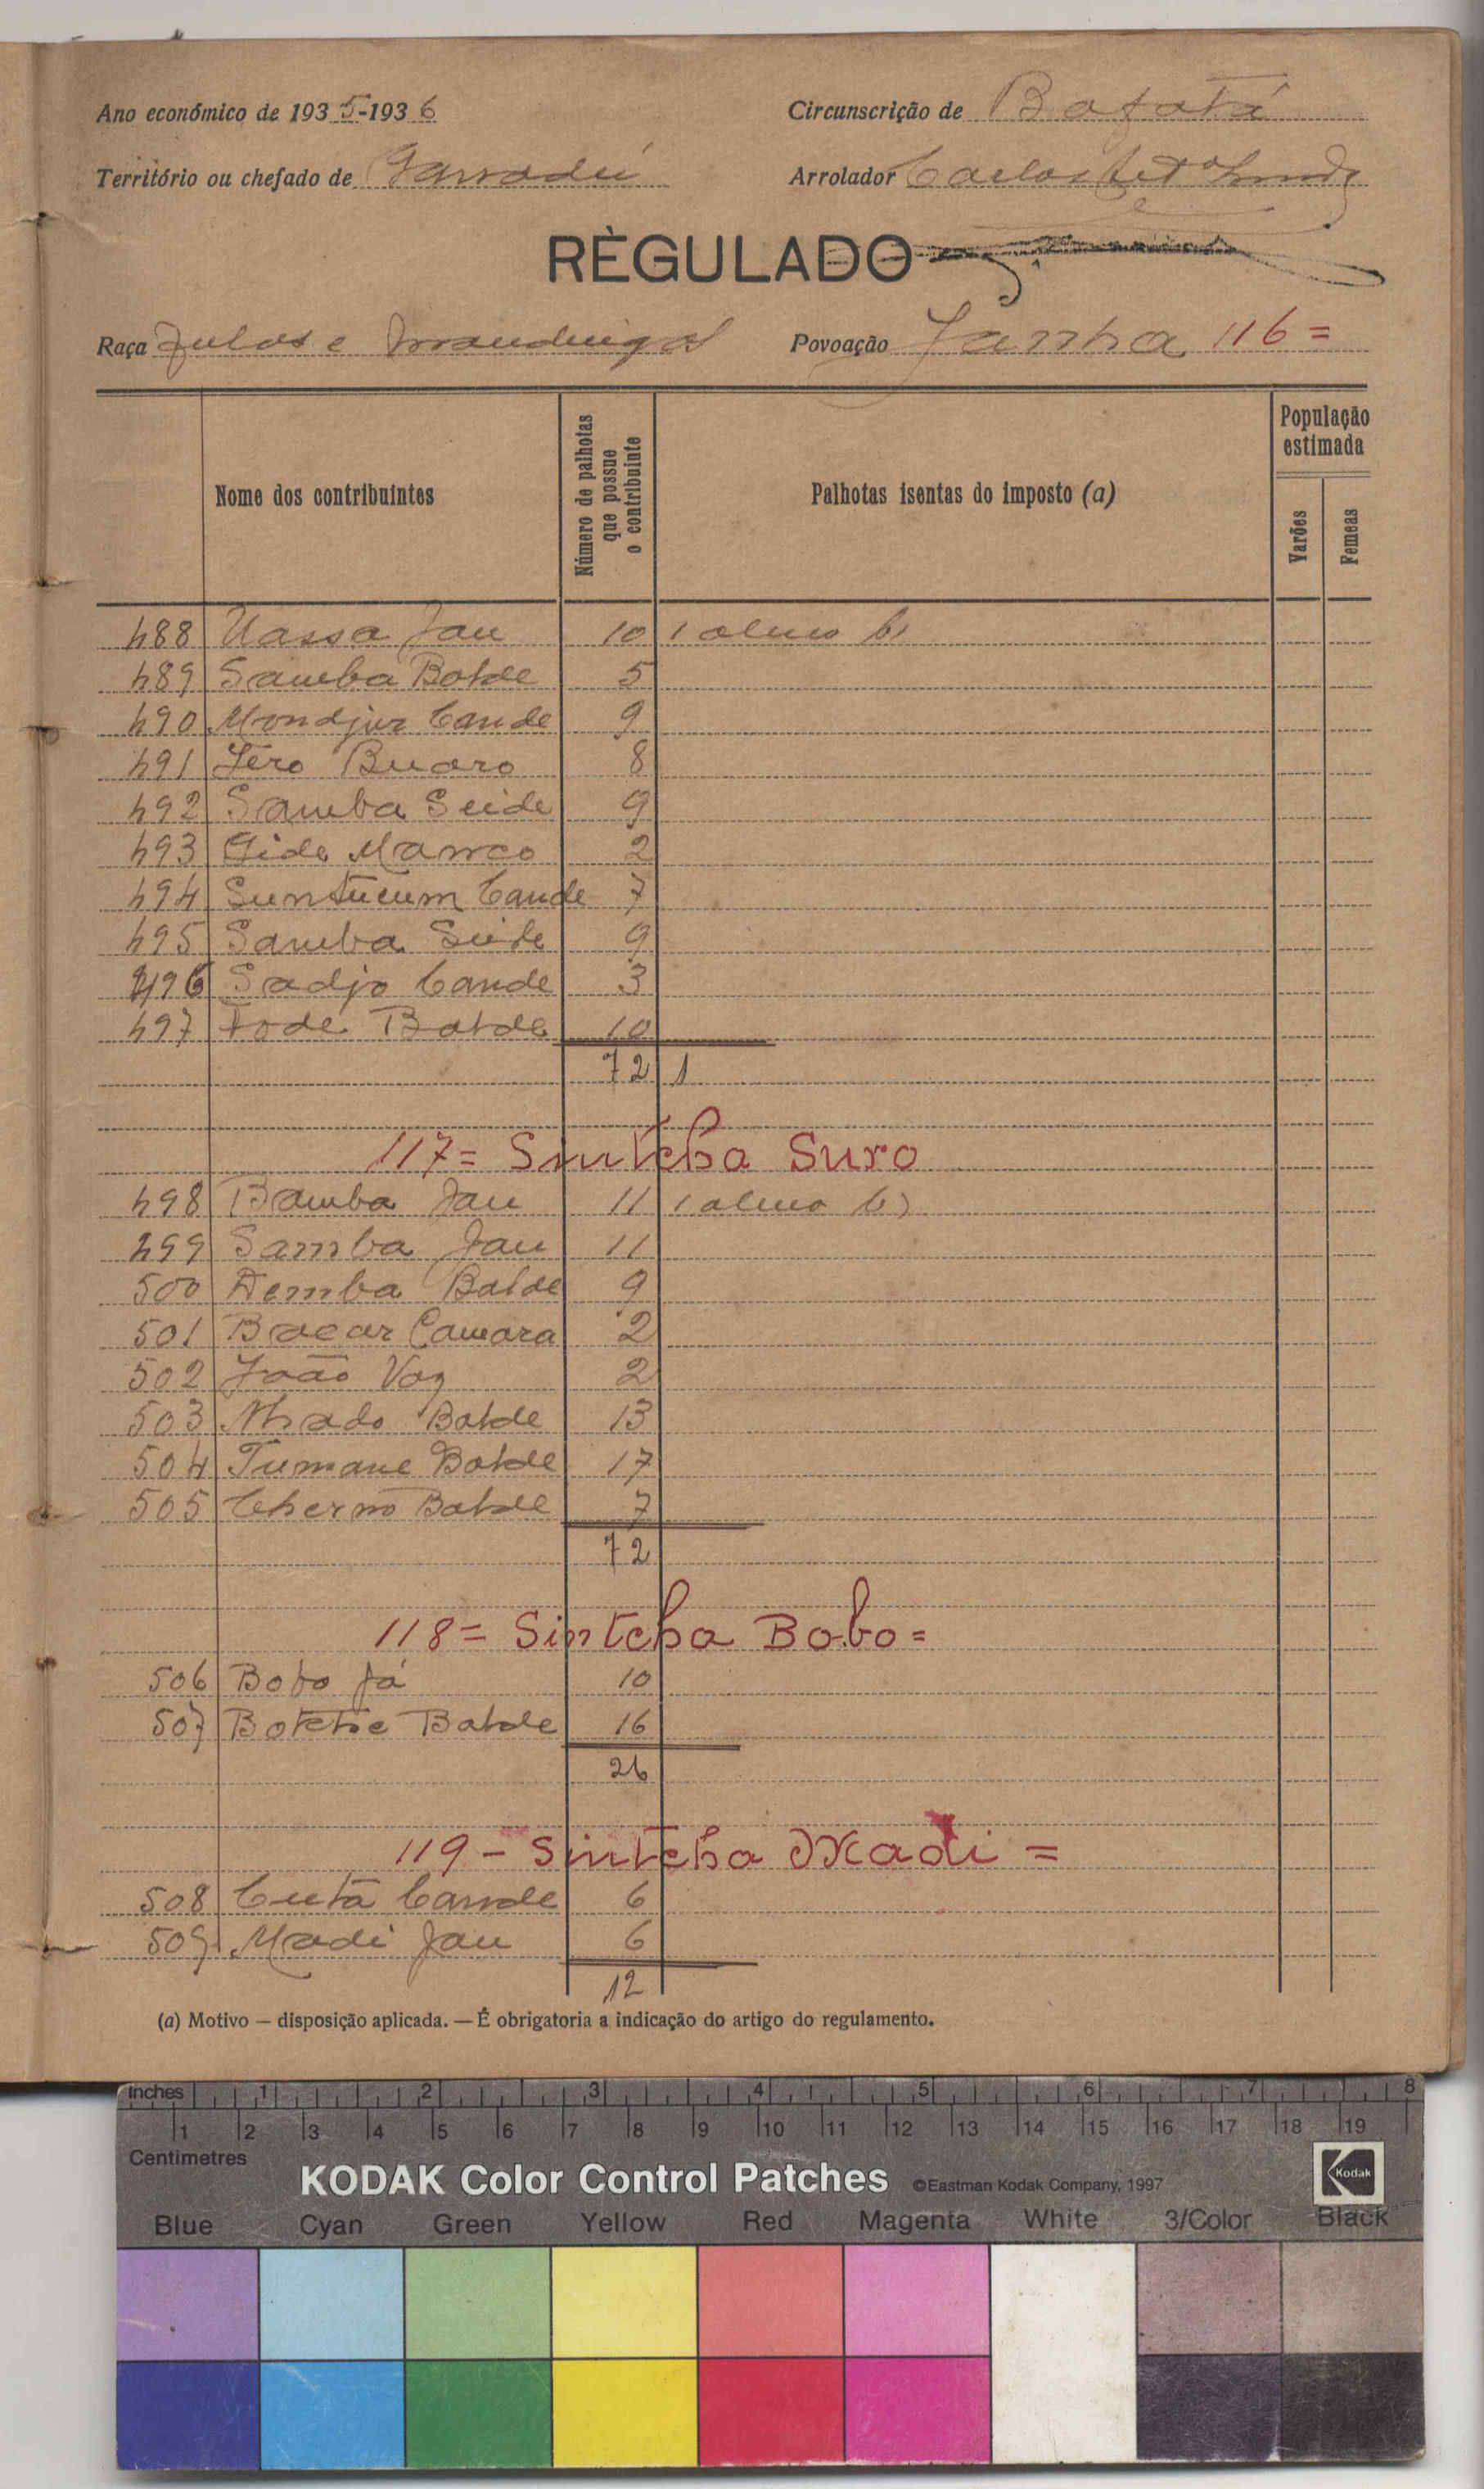 Ano económico de 1935-1936
Circunscrição de Bafatá
Território ou chefado de Ganadú
Arrolador Carlos
RÈGULADO
Raça Fulas e Mandingas
Povoação Janha 116 =
Nome dos contribuintes
Número de palhotas que possue o contribuinte
Palhotas isentas do imposto (a)
População estimada
Varões
Femeas
488 Uassa Jau 10 1 aluno b)
489 Samba Balde 5
490 Mondjur Cande 9
491 Jero Buaro 8
492 Samba Seide 9
493 Gide Manco 2
494 Suntucum Cande 7
495 Samba Seide 9
496 Sadjo Cande 3
497 Fode Balde 10
72 1
117= Sintcha Suro
498 Bamba Jau 11 1 aluno b)
499 Samba Jau 11
500 Demba Balde 9
501 Bacar Camara 2
502 João Vaz 2
503 Nhado Balde 13
504 Tumane Balde 17
505 Cherno Balde 7
72
118= Sintcha Bobo =
506 Bobo Já 10
507 Botche Balde 16
26
119 - Sintcha Madi =
508 Cutá Cande 6
509 Madi Jau 6
12
(a) Motivo — disposição aplicada. — É obrigatoria a indicação do artigo do regulamento.
Inches 1 2 3 4 5 6 7 8
1 2 3 4 5 6 7 8 9 10 11 12 13 14 15 16 17 18 19
Centimetres
KODAK Color Control Patches ©Eastman Kodak Company, 1997 Kodak
Blue Cyan Green Yellow Red Magenta White 3/Color Black